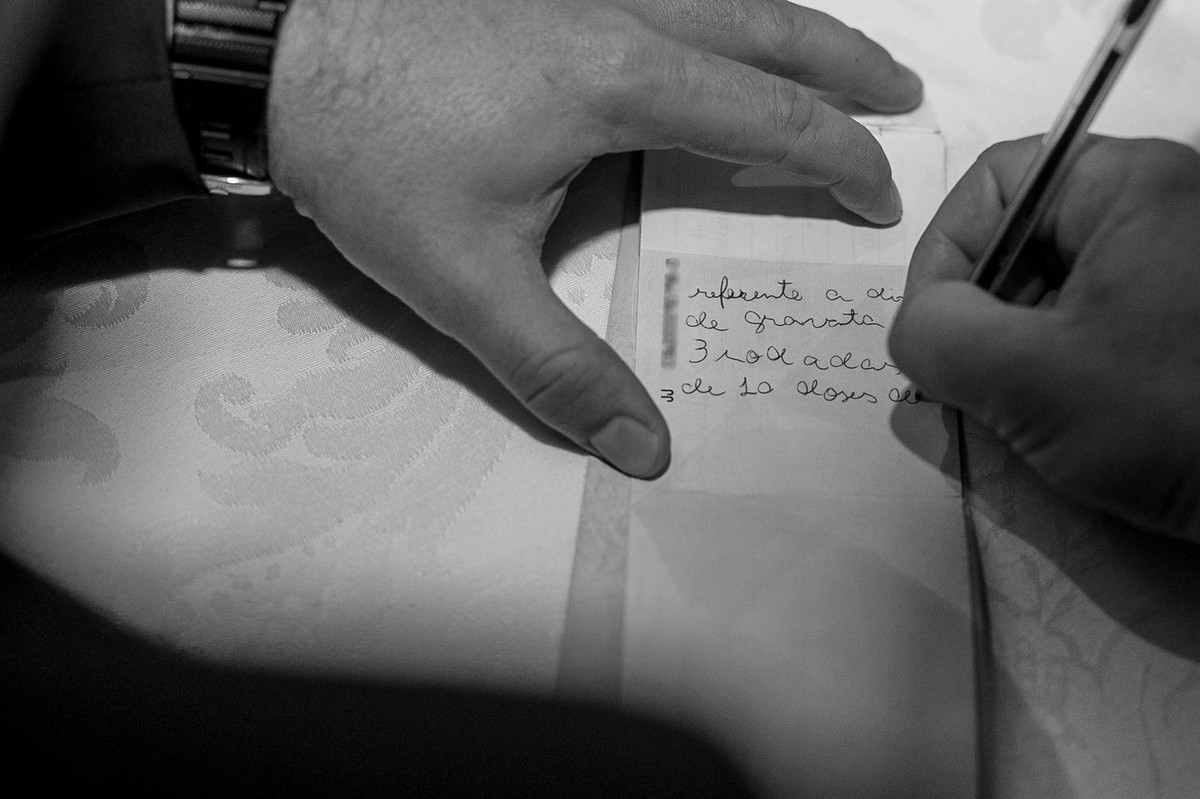 referente a di
de gravata
3 rodadas
de 10 doses de